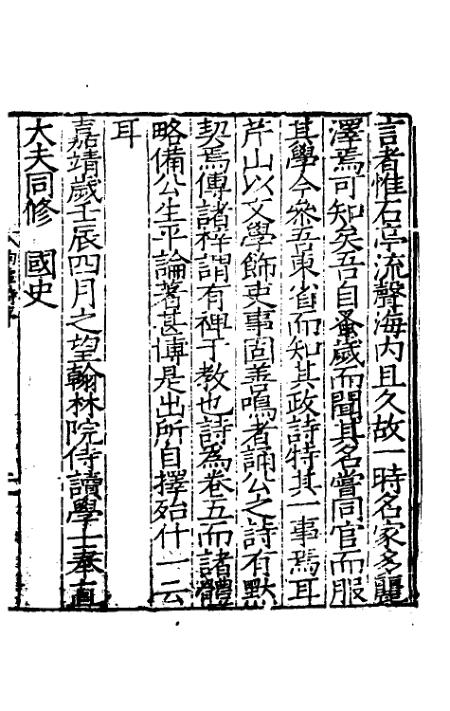 言者惟石亭流聲海内且久故一時名家多麗
澤焉可知矣吾自蚤歲而聞其名嘗同官而服
其學今叅吾東省而知其政詩特其一事焉耳
芹山以文學飾吏事固善鳴者誦公之詩有默
契焉傳諸梓謂有裨于教也詩為卷五而諸體
略備公生平論著甚博是出所自擇殆什一云
耳
嘉靖歲壬辰四月之望翰林院侍讀學士奉直
大夫同修　國史